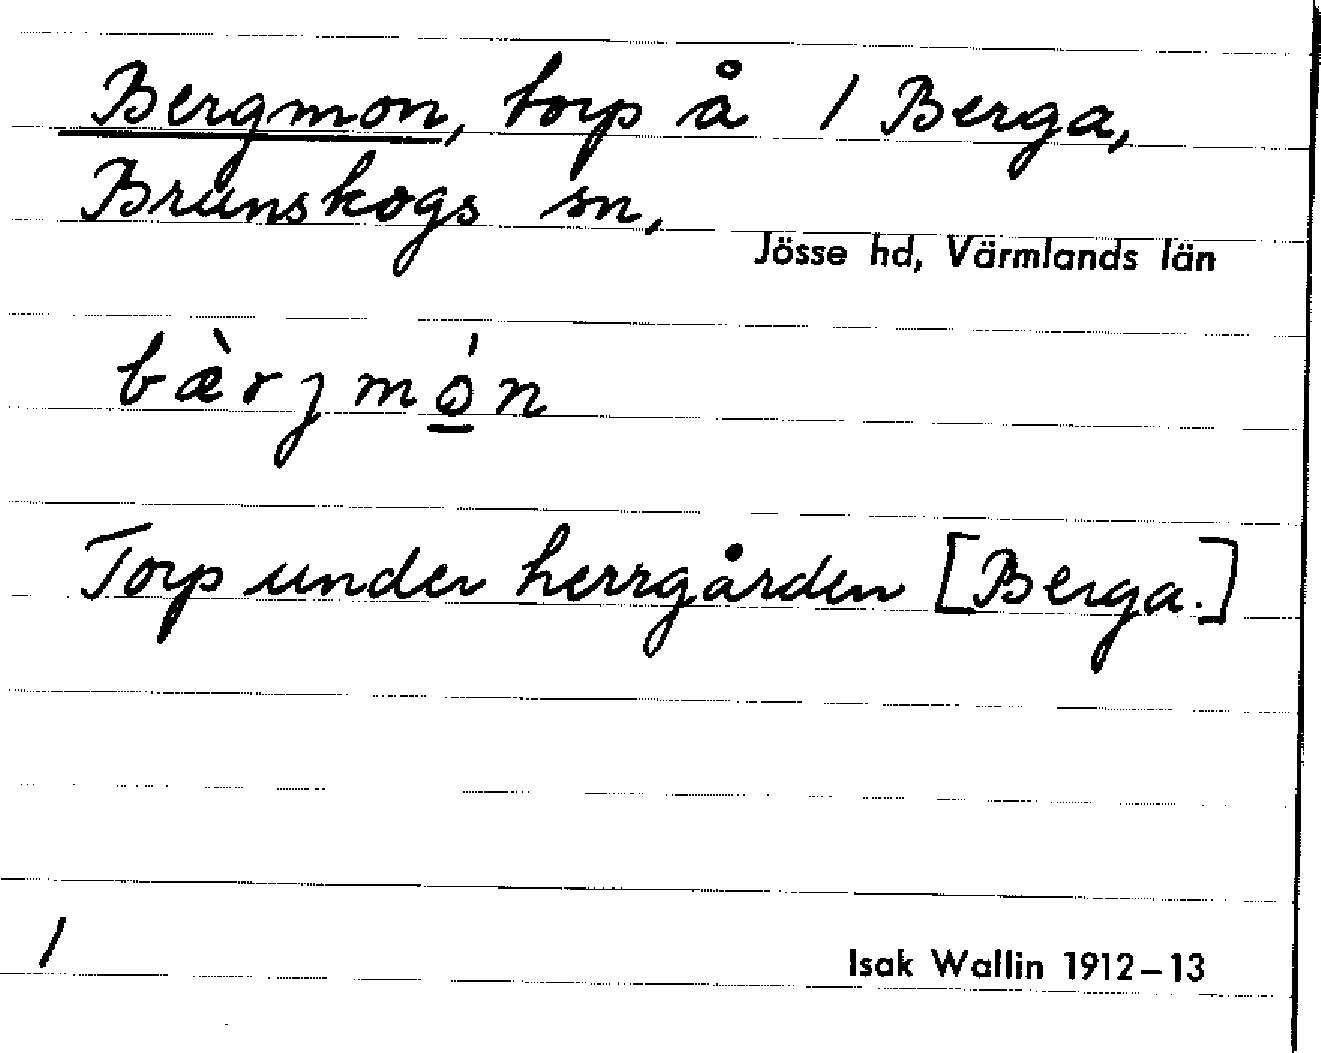 Bergmon, torp å 1 Berga,
Brunskogs sn,
Jösse hd, Värmlands län
bæ̀rȷmó̲n
Torp under herrgården [Berga.]
1
Isak Wallin 1912–13